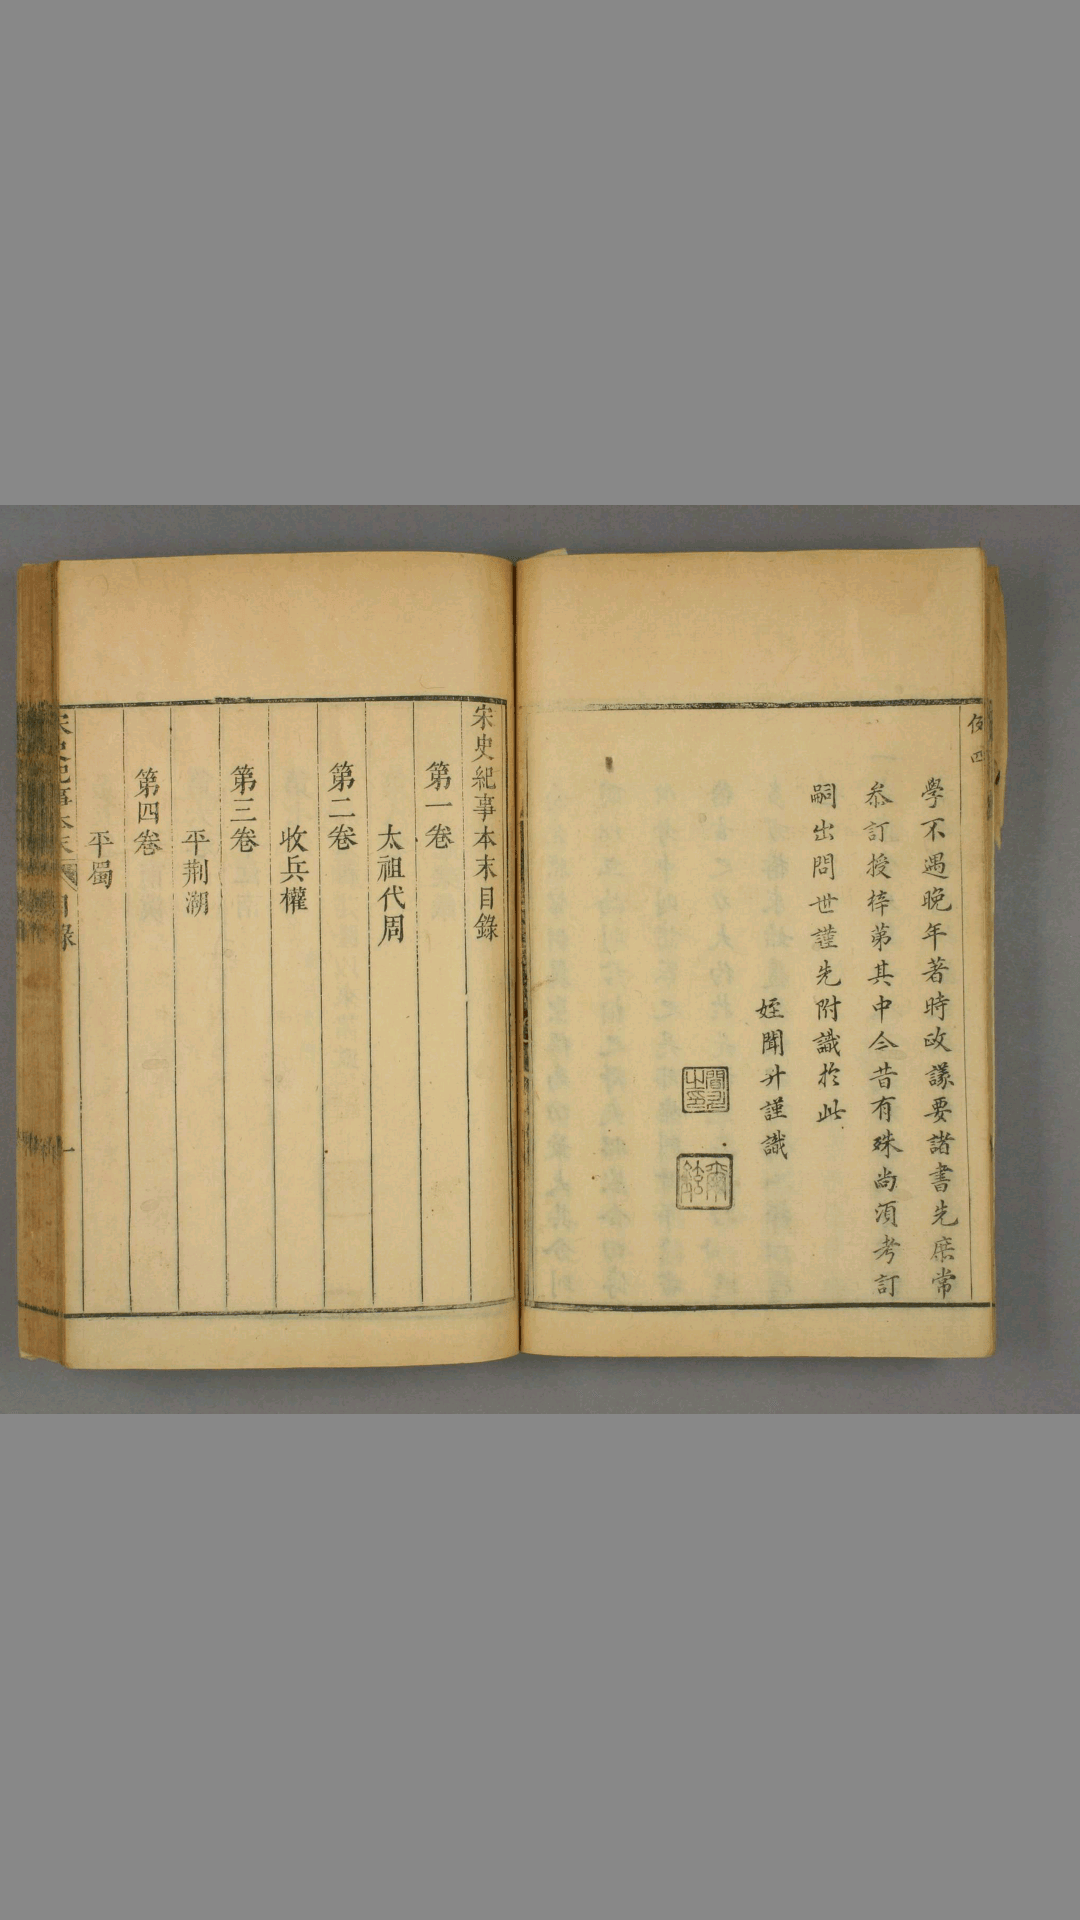 學不遇晚年著時政議要諸書先庶常
叅訂授梓第其中今昔有殊尚須考訂
嗣出問世謹先附識於此
姪聞升謹識
宋史紀事本末目錄
第一卷
太祖代周
第二卷
收兵權
第三卷
平荆湖
第四卷
平蜀
宋史紀事本末
目錄
一